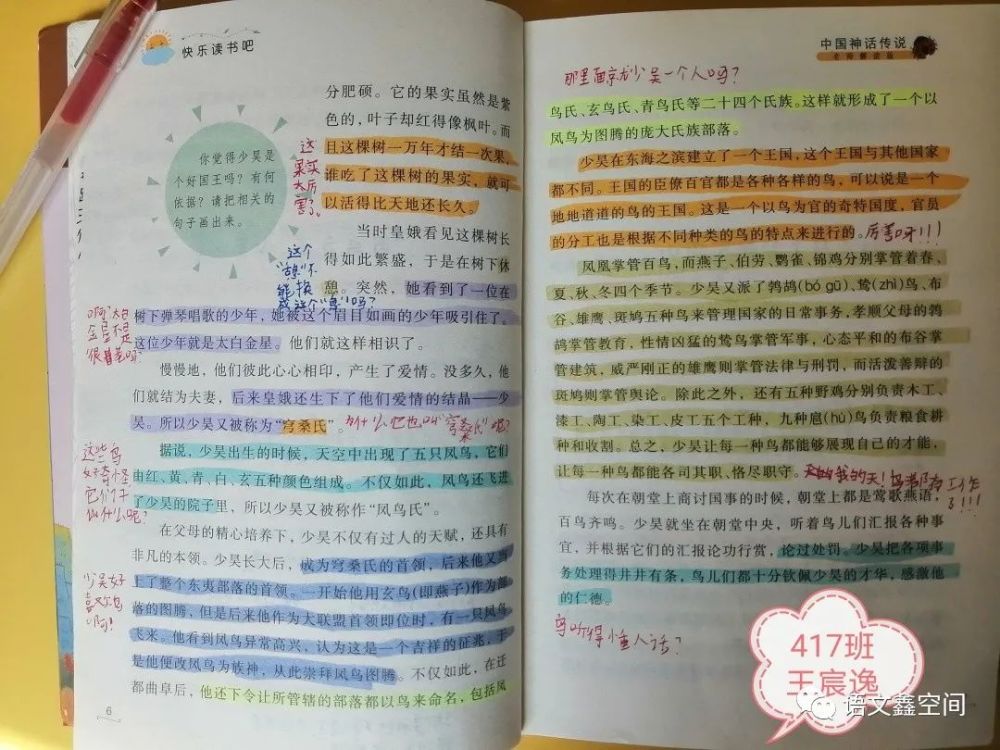 快乐读书吧
分肥硕。它的果实虽然是紫
色的，叶子却红得像枫叶。而
且这棵树一万年才结一次果，
谁吃了这棵树的果实，就可
以活得比天地还长久。
你觉得少昊是
个好国王吗？有何
依据？请把相关的
句子画出来。
这
果实
太厉
害了。
当时皇娥看见这棵树长
得如此繁盛，于是在树下休
憩。突然，她看到了一位在
树下弹琴唱歌的少年，她被这个眉目如画的少年吸引住了。
这位少年就是太白金星。他们就这样相识了。
这个
"憩"不
能换
成这个"息"吗？
啊？太白
金星不是
很着老吗？
慢慢地，他们彼此心心相印，产生了爱情。没多久，他
们就结为夫妻，后来皇娥还生下了他们爱情的结晶——少
昊。所以少昊又被称为“穹桑氏”。
为什么他也叫"穹桑氏"呢？
据说，少昊出生的时候，天空中出现了五只凤鸟，它们
由红、黄、青、白、玄五种颜色组成。不仅如此，凤鸟还飞进
了少昊的院子里，所以少昊又被称作“凤鸟氏”。
这些鸟
好奇怪
它们干
什么呢？
在父母的精心培养下，少昊不仅有过人的天赋，还具有
非凡的本领。少昊长大后，成为穹桑氏的首领，后来他又当
上了整个东夷部落的首领。一开始他用玄鸟(即燕子)作为部
落的图腾，但是后来他作为大联盟首领即位时，有一只凤鸟
飞来。他看到凤鸟异常高兴，认为这是一个吉祥的征兆，于
是他便改凤鸟为族神，从此崇拜凤鸟图腾。不仅如此，在迁
都曲阜后，他还下令让所管辖的部落都以鸟来命名，包括凤
少昊好
喜欢鸟
啊！
6
中国神话传说
那里面就少昊一个人吗？
鸟氏、玄鸟氏、青鸟氏等二十四个氏族。这样就形成了一个以
凤鸟为图腾的庞大氏族部落。
少昊在东海之滨建立了一个王国，这个王国与其他国家
都不同。王国的臣僚百官都是各种各样的鸟，可以说是一个
地地道道的鸟的王国。这是一个以鸟为官的奇特国度，官员
的分工也是根据不同种类的鸟的特点来进行的。
厉害呀!!!
凤凰掌管百鸟，而燕子、伯劳、鹦雀、锦鸡分别掌管着春、
夏、秋、冬四个季节。少昊又派了鹁鸪(bó gū)、鸷(zhì)鸟、布
谷、雄鹰、斑鸠五种鸟来管理国家的日常事务，孝顺父母的鹁
鸪掌管教育，性情凶猛的鸷鸟掌管军事，心态平和的布谷掌
管建筑，威严刚正的雄鹰则掌管法律与刑罚，而活泼善辩的
斑鸠则掌管舆论。除此之外，还有五种野鸡分别负责木工、
漆工、陶工、染工、皮工五个工种，九种扈(hù)鸟负责粮食耕
种和收割。总之，少昊让每一种鸟都能够展现自己的才能，
让每一种鸟都能各司其职、恪尽职守。
我的天！鸟都有工作了!!!
每次在朝堂上商讨国事的时候，朝堂上都是莺歌燕语，
百鸟齐鸣。少昊就坐在朝堂中央，听着鸟儿们汇报各种事
宜，并根据它们的汇报论功行赏，论过处罚。少昊把各项事
务处理得井井有条，鸟儿们都十分钦佩少昊的才华，感激他
的仁德。
鸟听得懂人话？
417班
王宸逸
语文鑫空间